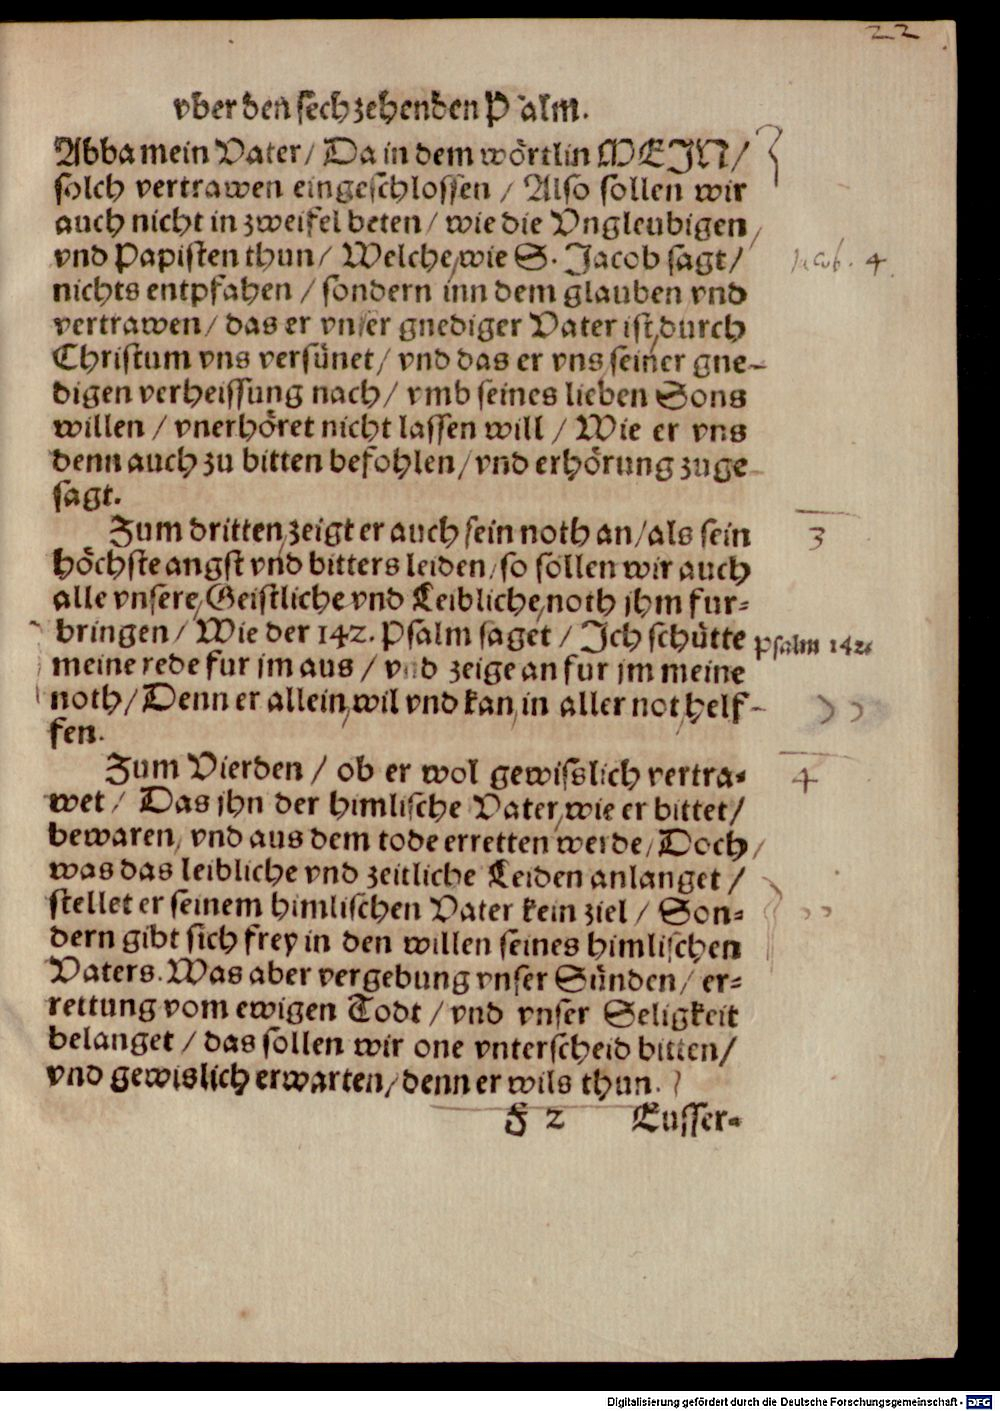 22
vber den sechzehenden P alm.
Abba mein Vater/ Da in dem wörtlin MEJN/
solch vertrawen eingeschlossen / Also sollen wir
auch nicht in zweifel beten/ wie die Vngleubigen
vnd Papisten thun/ Welche, wie S. Jacob sagt/
Jacob. 4.
nichts entpfahen / sondern inn dem glauben vnd
vertrawen/ das er vnser gnediger Vater ist, durch
Christum vns versünet/ vnd das er vns, seiner gne-
digen verheissung nach/ vmb seines lieben Sons
willen / vnerhöret nicht lassen will / Wie er vns
denn auch zu bitten befohlen/ vnd erhörung zuge-
sagt.
Zum dritten, zeigt er auch sein noth an/ als sein
3
höchste angst vnd bitters leiden, so sollen wir auch
alle vnsere, Geistliche vnd Leibliche, noth jhm fur-
bringen/ Wie der 142. Psalm saget / Jch schütte
Psalm 142.
meine rede fur jm aus / vnd zeige an fur jm meine
noth/ Denn er allein, wil vnd kan, in aller not, helf-
fen.
Zum Vierden / ob er wol gewisslich vertra-
4
wet / Das jhn der himlische Vater, wie er bittet/
bewaren, vnd aus dem tode erretten werde, Doch,
was das leibliche vnd zeitliche Leiden anlanget /
stellet er seinem himlischen Vater kein ziel / Son-
dern gibt sich frey in den willen seines himlischen
Vaters. Was aber vergebung vnser Sünden/ er-
rettung vom ewigen Todt / vnd vnser Seligkeit
belanget / das sollen wir one vnterscheid bitten/
vnd gewislich erwarten/ denn er wils thun.
F 2 Eusser-
Digitalisierung gefördert durch die Deutsche Forschungsgemeinschaft - DFG